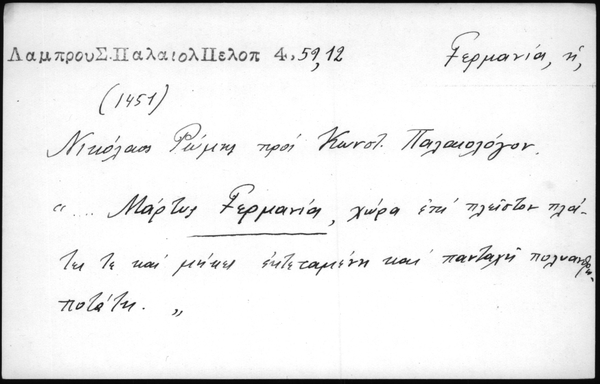 ΛαμπρουΣ.ΠαλαιολΠελοπ 4.59,12
Γερμανία, ἡ,
(1451)
Νικόλαος Ῥώμης πρὸς Κωνστ. Παλαιολόγον.
"... Μάρτυς Γερμανία, χώρα ἐπὶ πλεῖστον πλά-
τει τε καὶ μήκει ἐκτεταμένη καὶ πανταχῆ πολυανθρω-
ποτάτη. "